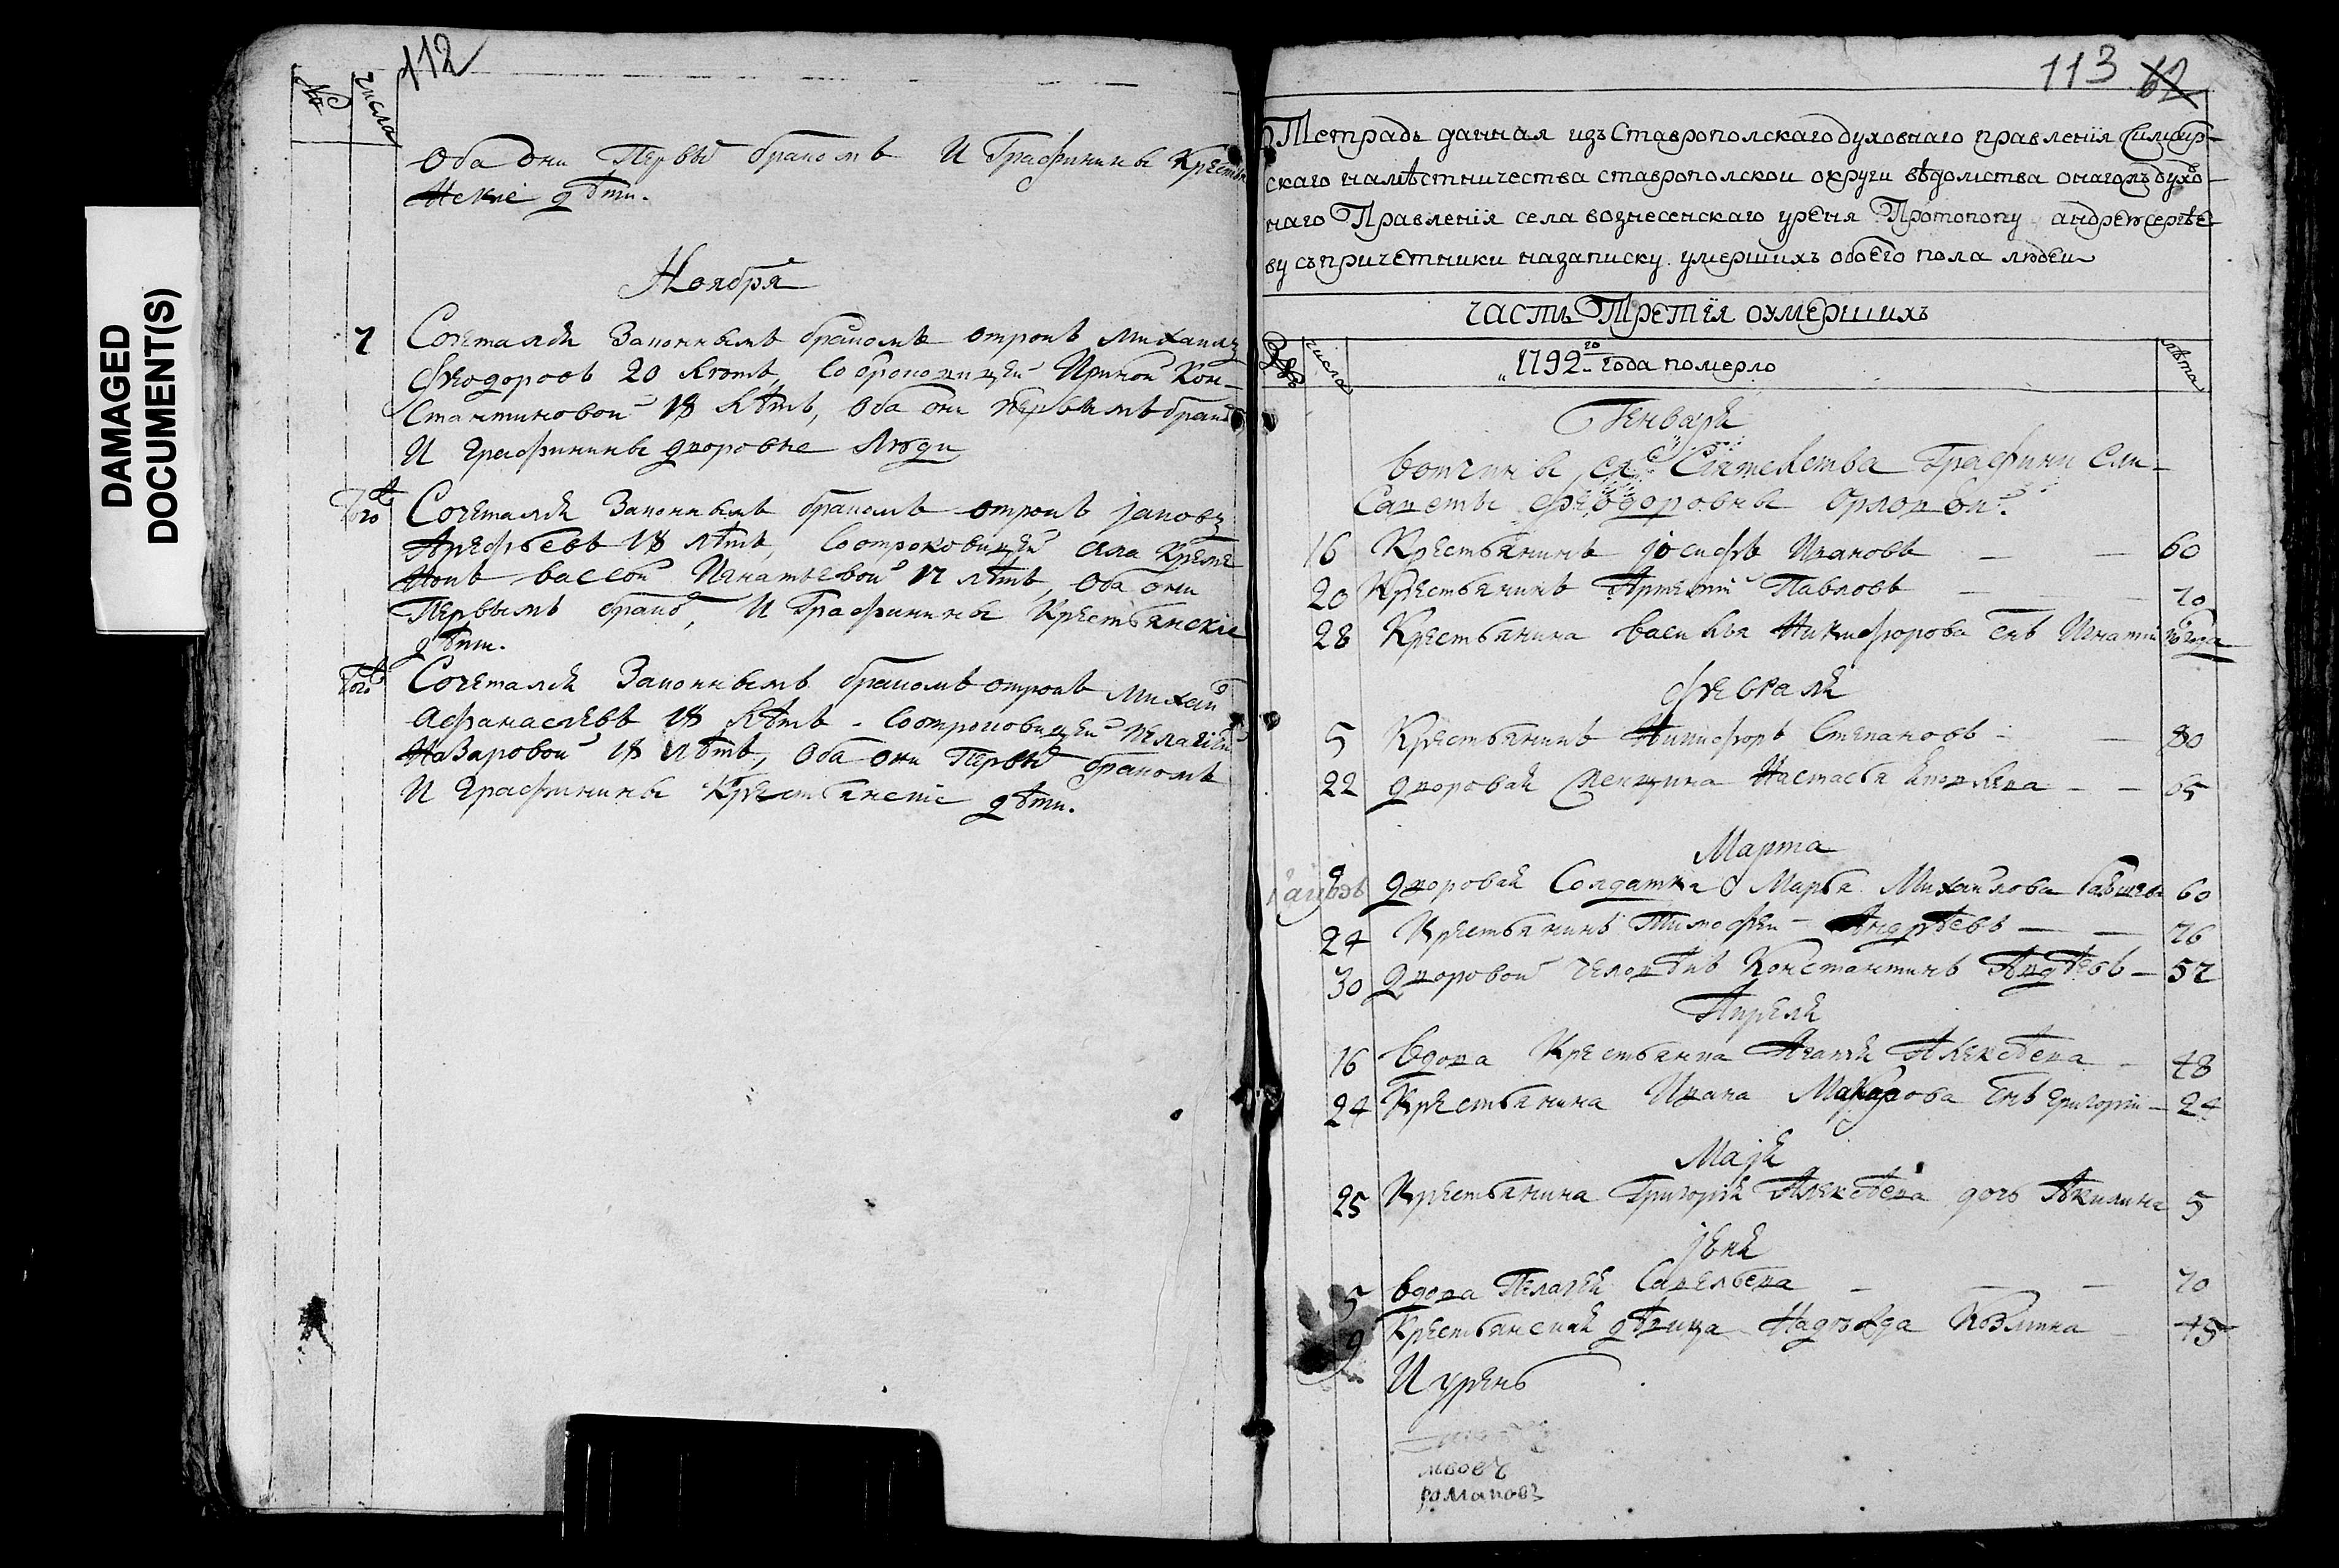 DAMAGED
DOCUMENT(S)
112
№
числа
Оба они Первы браком И Графинины Крестья
нские дѣти.
Ноября
7 Сочетался Законнымъ бракомъ отрокъ Михаилъ
Феодоровъ 20 лѣтъ, Со отроковицей Ириной Кон-
стантиновой 18 лѣтъ, Оба они первымъ брако
И графинины дворовые люди
Того Сочетался Законнымъ бракомъ отрокъ Iаковъ
Арефьевъ 18 лѣтъ, Со отроковицей села
Игнатьевой 17 лѣтъ, Оба они
Первымъ брако, И Графинины Крестьянскіе
дѣти.
Того Сочетался Законнымъ бракомъ отрокъ Михаи
Афанасьевъ 18 лѣтъ. Со отроковицей Пелагіей
Назаровой 18 лѣтъ, Оба они Первы бракомъ
И графинины Крестьянскіе дѣти.
113 62
Тетрадь данная изъ Ставрополскаго духовнаго правленїя Симбир-
скаго намѣстничества ставрополской округи вѣдомства онагожъ духо-
наго Правленїя села вознесенскаго уреня Протопопу андрею сергѣе-
ву съпричетники назаписку умершихъ обоего пола людеи
Часть Третїя оумершихъ
№
числа
1792 го года померло
лѣта
Генваря
Вотчины ея Сіятелства Графини Ели-
саветы Феодоровны Орловой.
16 Крестьянинъ Iосифъ Ивановъ — — 60
20 Крестьянинъ Артемій Павловъ — — 70
28 Крестьянина Василья Никифорова снъ Игнатій года
Февраля
5 Крестьянинъ Никифоръ Степановъ — — 80
22 дворовая женщина Настасья — — 65
Марта
дворовая Солдатка Марья Михаилова 60
24 Крестьянинъ Тимофеи Андрѣевъ — — 76
30 дворовой человѣкъ Константинъ — 57
Апреля
16 вдова Крестьянка Агапія Алексѣева — 48
24 Крестьянина Ивана Макарова снъ Григорій — 24
Маїя
25 Крестьянина Григорія Алексѣева дочь Акилина 5
Iюня
5 вдова Пелагея Савельева — — — 70
9 Крестьянская дѣвица Надежда Козмина 45
И урень
романовъ